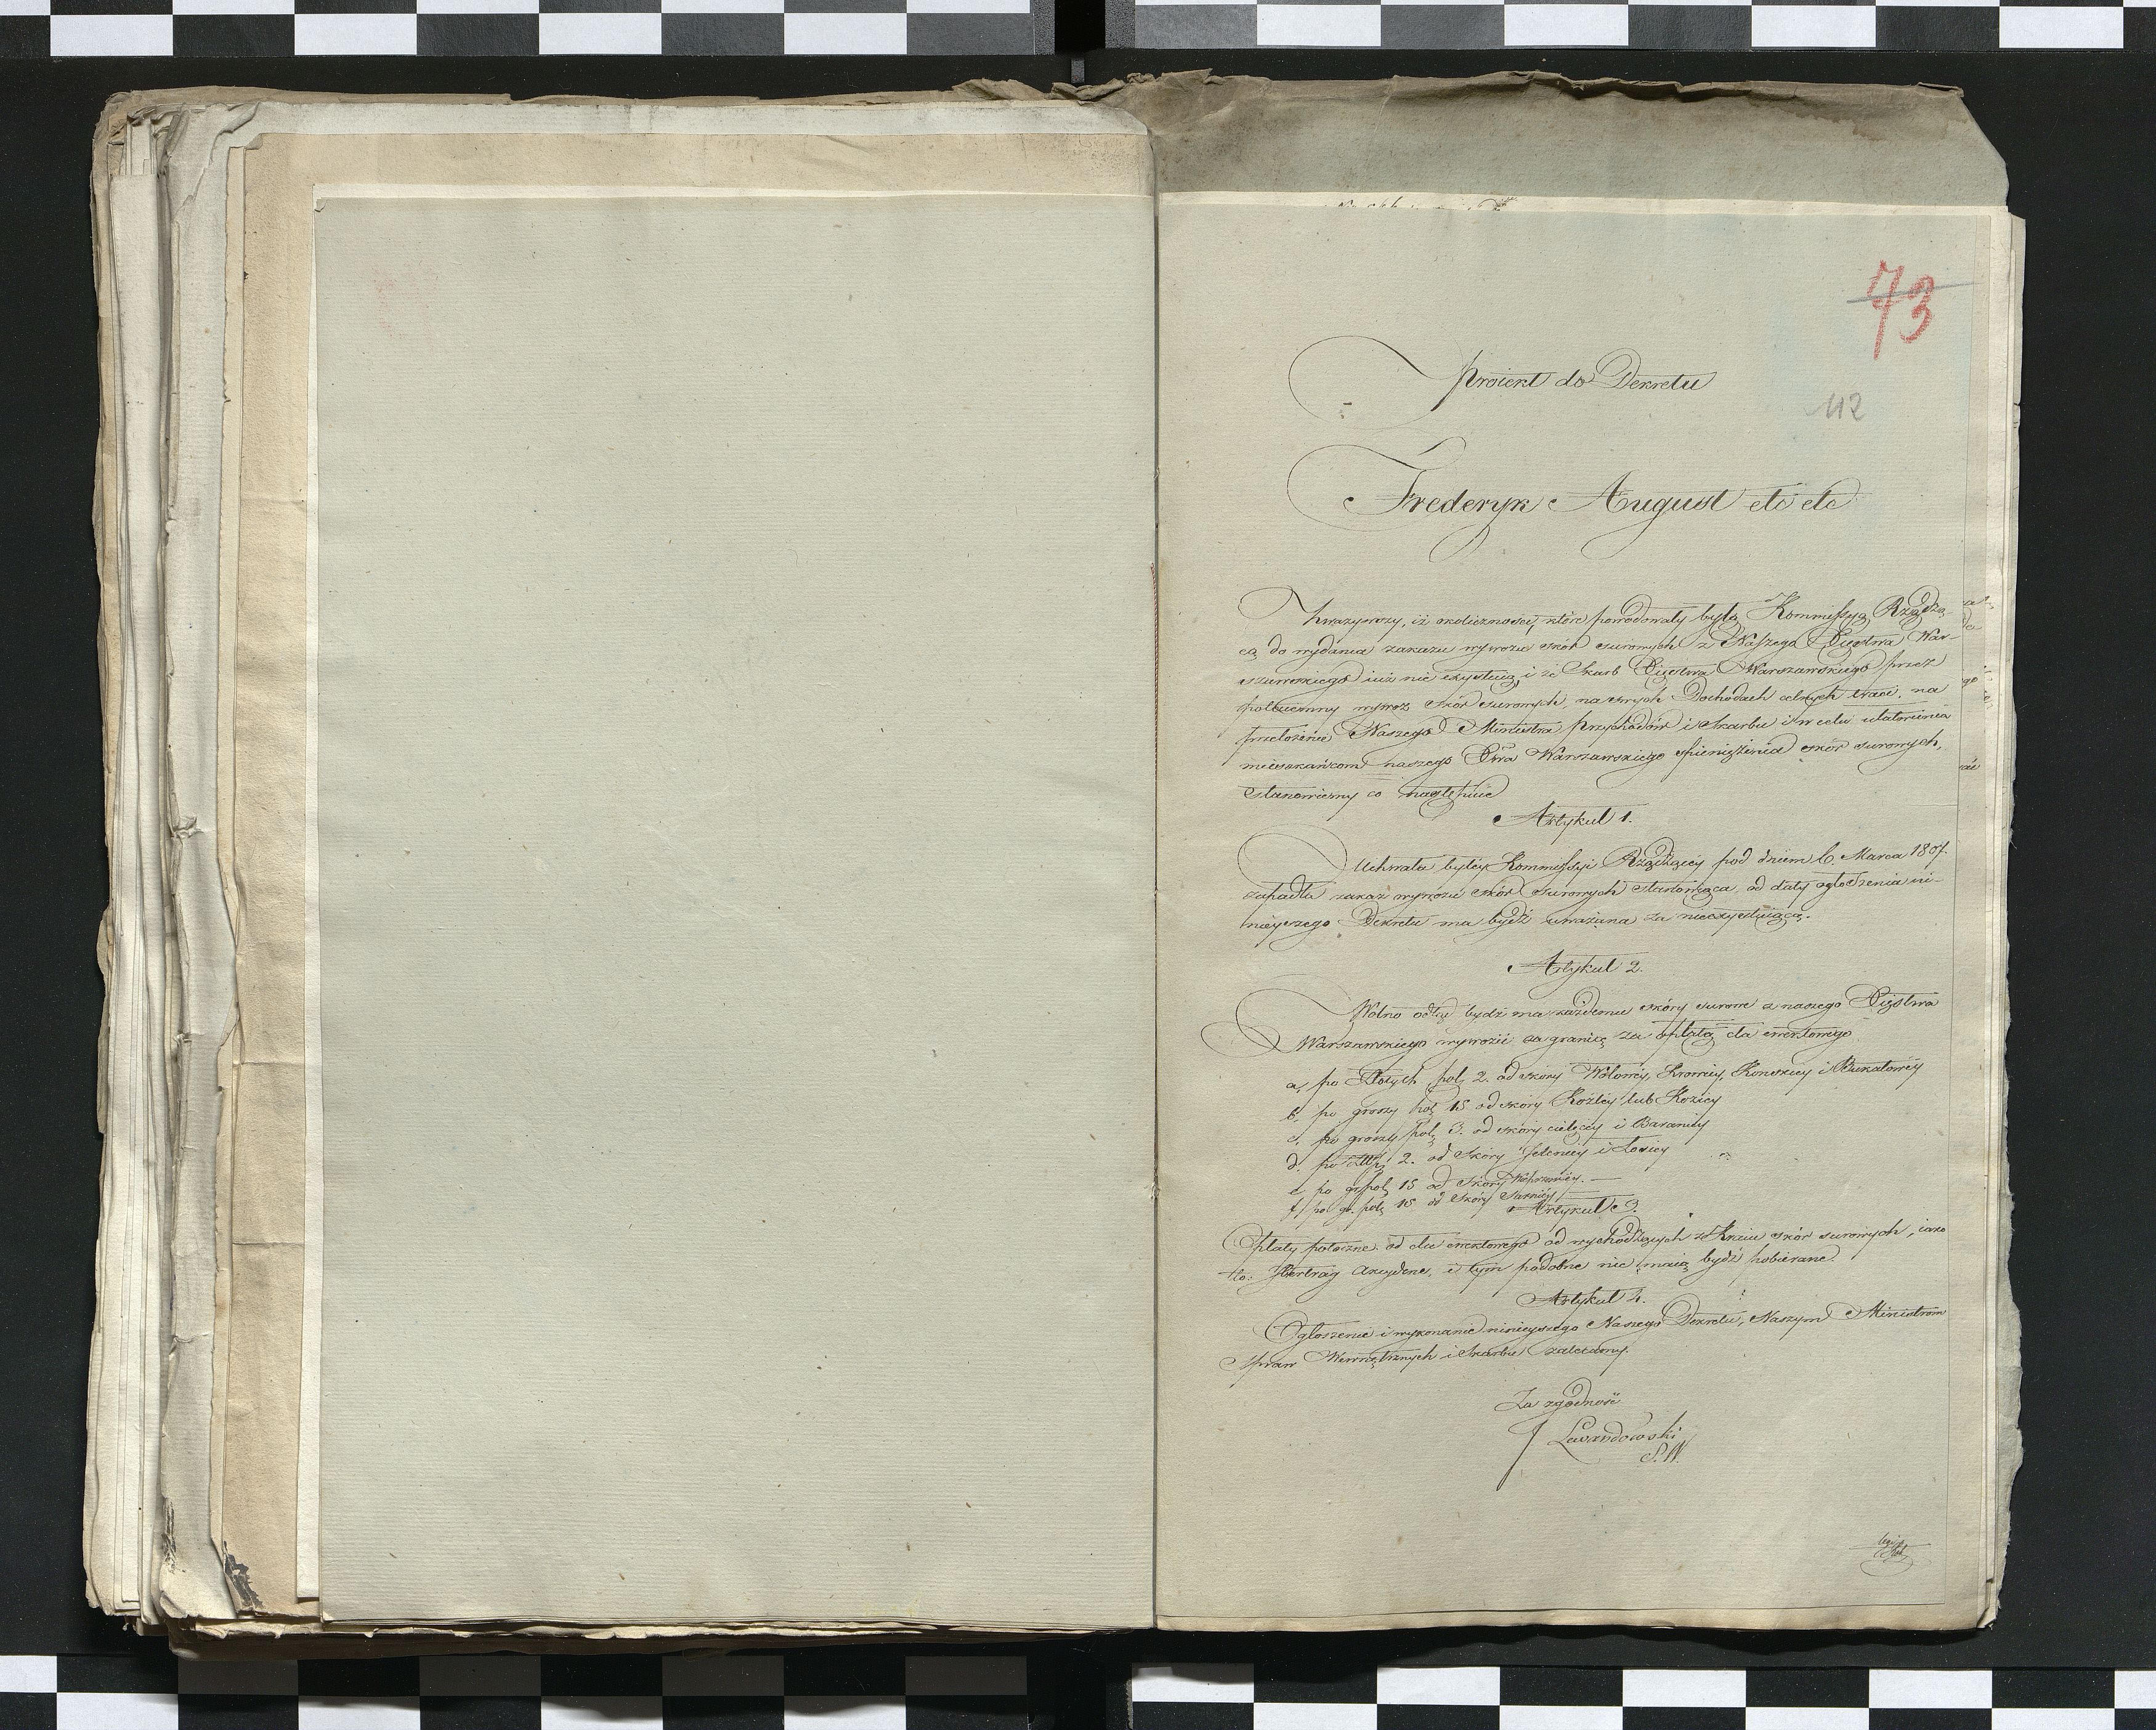 73
112
Proiekt do Dekretu
Frederyk August etc etc
Zważywszy, iż okoliczności, które powodowały byłą Kommissyą Rządzą-
cą do wydania zakazu wywozu skór surowych z Naszego Xięstwa War-
szawskiego iuż nie exystuią, i że Skarb Xięstwa Warszawskiego przez
potaiemny wywoz skór surowych, na swych Dochodach celnych traci, na
przełożenie Naszego Ministra Przychodów i Skarbu i w celu ułatwienia
mieszkańcom naszego Xtwa Warszawskiego spieniężenia skór surowych,
stanowiemy co następuie
Artykuł 1.
Uchwała byłey Kommissyi Rządzącey pod dniem 6. Marca 1807.
zapadła zakaz wywozu skór surowych stanowiąca, od daty ogłoszenia ni-
nieyszego Dekretu ma bydź uważana za nieexystuiącą.
Artykuł 2.
Wolno odtąd bydź ma każdemu skóry surowe z naszego Xięstwa
Warszawskiego wywozić za granicę za opłatą cła
a, po Złotych pol. 2. od skóry Wołowey, Krowiey, Końskiey i Bukatowey
b, po groszy pol. 15 od skóry Koźley lub Koziey
c, po groszy pol. 3. od skóry cielęcey i Baraniey
d. po Złł. 2. od Skóry Jeleniey i Łosiey
e po gr. pol. 15 od Skóry Wieprzowey. —
f, po gr. pol. 15 od Skóry Sarniey
Artykuł 3.
Opłaty poboczne od cła od wychodzących z Kraiu skór surowych, iako
to: akcydens, i tym podobne nie maią bydź pobierane.
Artykuł 4.
Ogłoszenie i wykonanie ninieyszego Naszego Dekretu, Naszym Ministrom
Spraw Wewnętrznych i Skarbu zalecamy.
Za zgodność
Lewandowski
S. W.